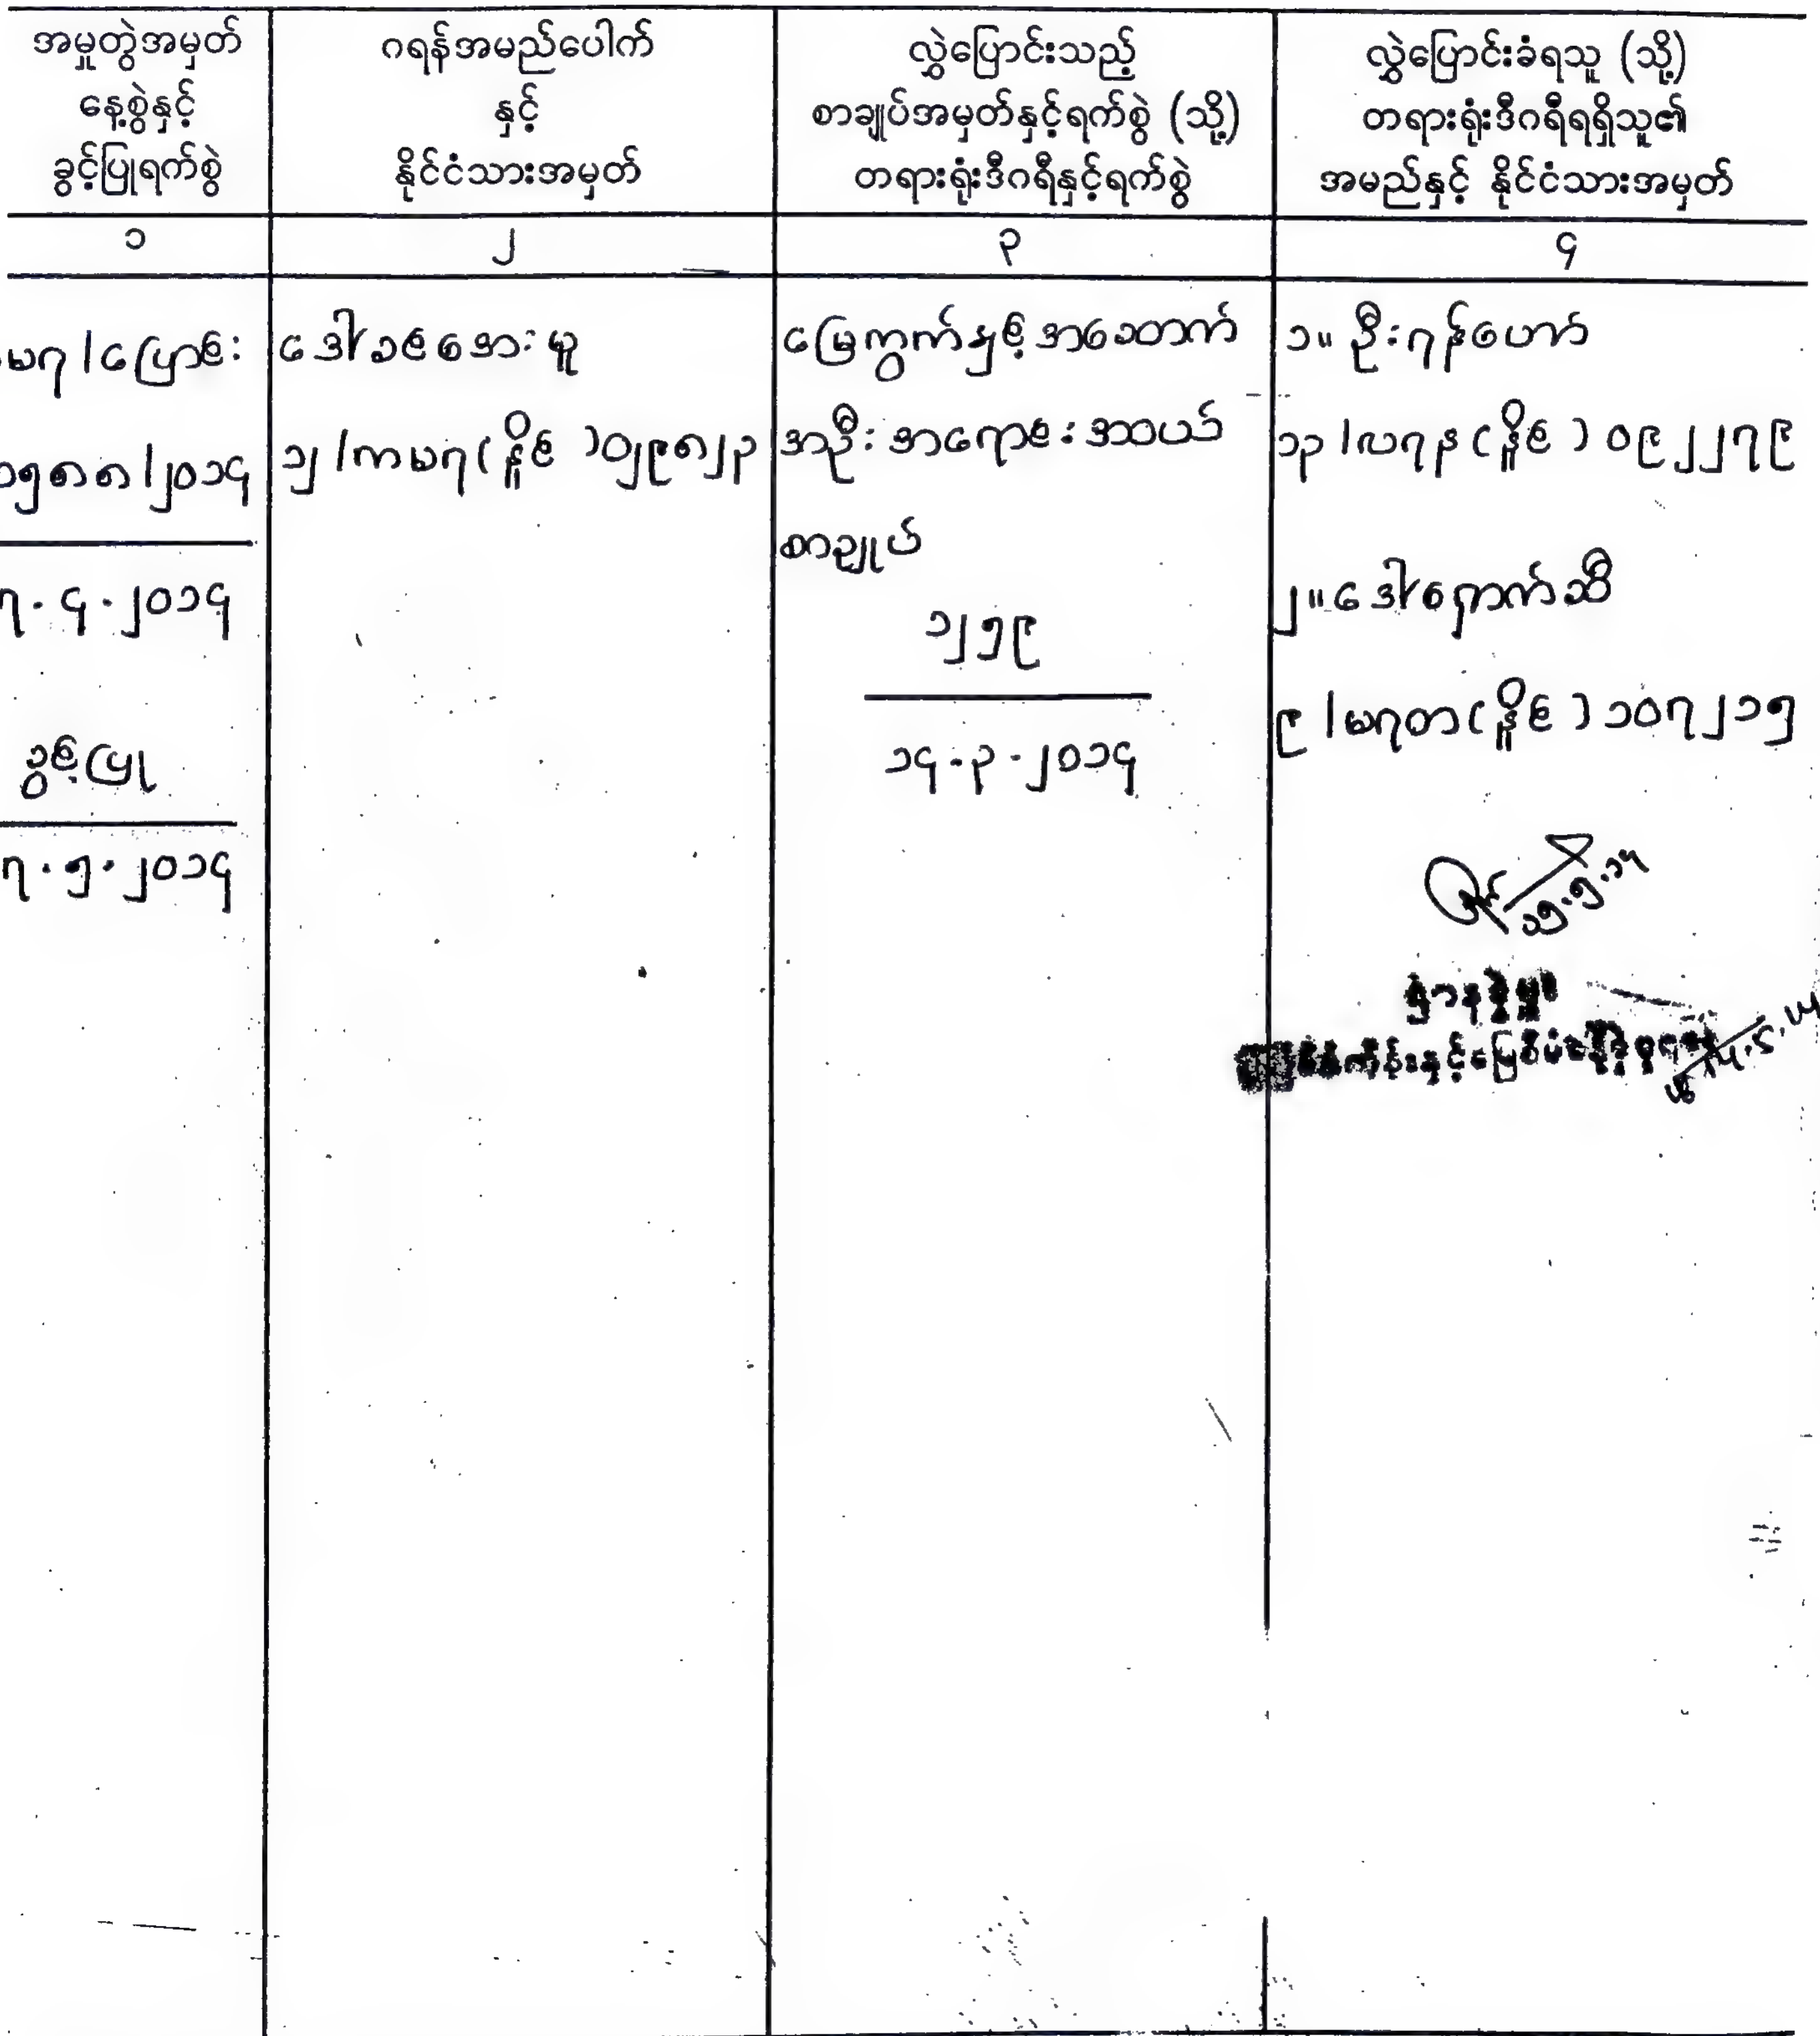 အမှုတွဲအမှတ်
နေ့စွဲနှင့်
ခွင့်ပြုရက်စွဲ
ဂရန်အမည်ပေါက်
နှင့်
နိုင်ငံသားအမှတ်
လွှဲပြောင်းသည့်
စာချုပ်အမှတ်နှင့်ရက်စွဲ (သို့)
တရားရုံးဒီဂရီနှင့်ရက်စွဲ
လွှဲပြောင်းခံရသူ (သို့)
တရားရုံးဒီဂရီရရှိသူ၏
အမည်နှင့် နိုင်ငံသားအမှတ်
၁
၂
၃
၄
မရ/ပြောင်း
၁၅၈၈/၂၀၁၄
၇.၄.၂၀၁၄
ခွင့်ပြု
၇.၅.၂၀၁၄
ဒေါ်ခင်အေးမူ
၁၂/ကမရ(နိုင်)၀၂၉၈၂၃
မြေကွက်နှင့်အဆောက်
အဦးအရောင်းအဝယ်
စာချုပ်
၁၂၅၉
၁၄.၃.၂၀၁၄
၁။ ဦးရန်ဟော်
၁၃/လရန(နိုင်)၀၉၂၂၇၉
၂။ ဒေါ်ရှောက်ဆီ
၉/မရတ(နိုင်)၁၀၇၂၁၅
၁၅.၅.၁၄
ဌာနခွဲမှူး